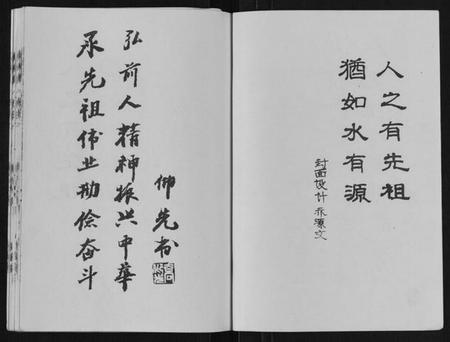 承先祖伟业勤俭奋斗
弘前人精神振兴中华
先书
人之有先祖
猶如水有源
封面设计